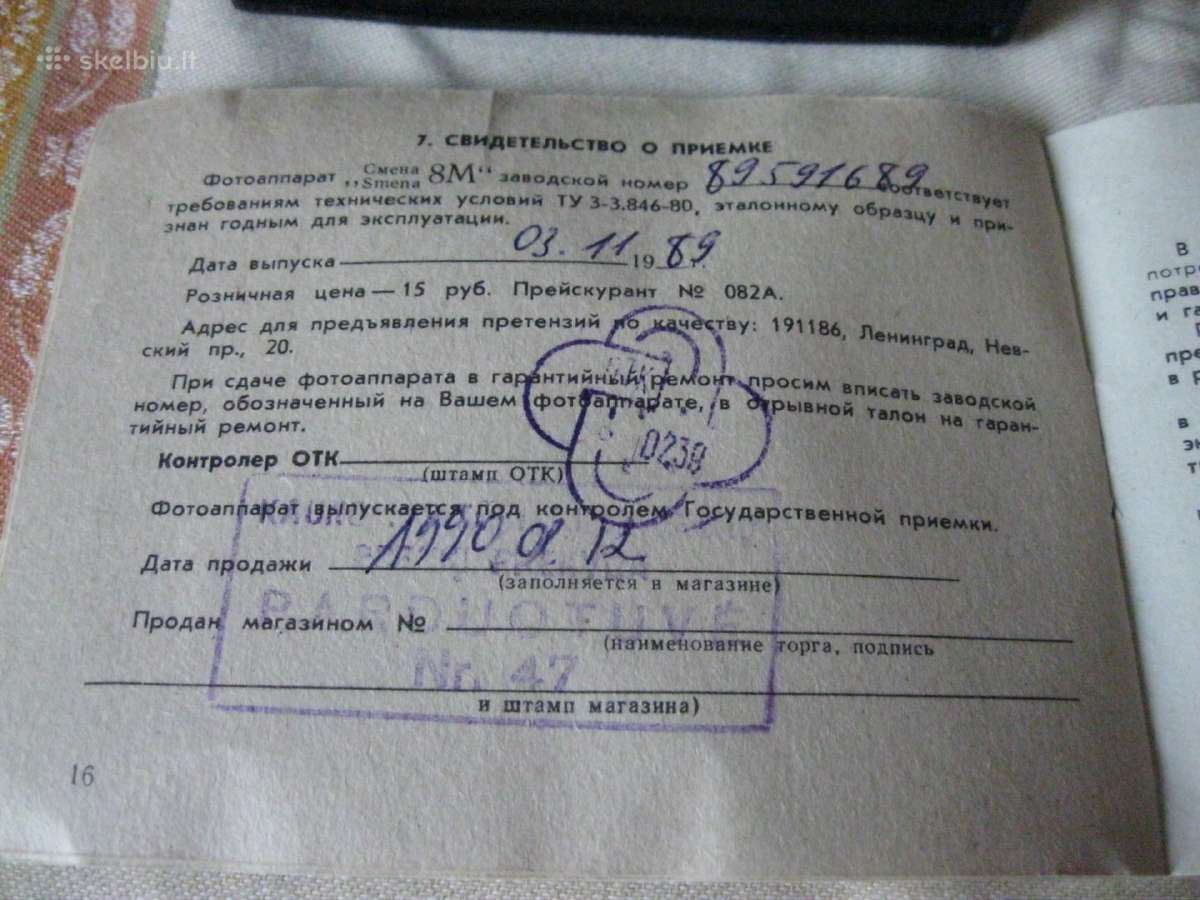 skelbiu.lt
7. СВИДЕТЕЛЬСТВО О ПРИЕМКЕ
Фотоаппарат „Смена Smena 8М“ заводской номер 89591689 соответствует
требованиям технических условий ТУ 3-3.846-80, эталонному образцу и приз-
знан годным для эксплуатации.
Дата выпуска 03.11 1989 г.
Розничная цена — 15 руб. Прейскурант № 082А.
Адрес для предъявления претензий по качеству: 191186, Ленинград, Нев-
ский пр., 20.
При сдаче фотоаппарата в гарантийный ремонт просим вписать заводской
номер, обозначенный на Вашем фотоаппарате, в отрывной талон на гаран-
тийный ремонт.
ОТК
0238
Контролер ОТК
(штамп ОТК)
Фотоаппарат выпускается под контролем Государственной приемки.
Дата продажи 1990 12
(заполняется в магазине)
PARDUOTUVĖ
Nr. 47
Продан магазином №
(наименование торга, подпись
и штамп магазина)
16
В
потр
прав
и га
пре
в
в